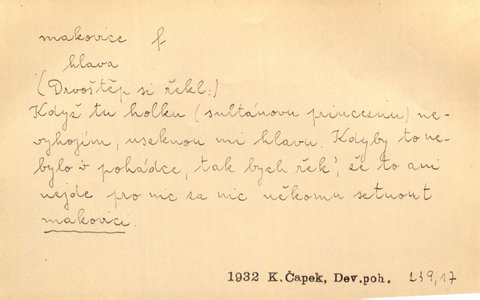 makovice f
hlava
(Drvoštěp si řekl:)
Když tu holku (sultánovu princeznu) ne-
vyhojím, useknou mi hlavu. Kdyby to ne-
bylo v pohádce, tak bych řek', že to ani
nejde pro nic za nic někomu setnout
makovici.
1932 K.Čapek, Dev.poh. 239,17